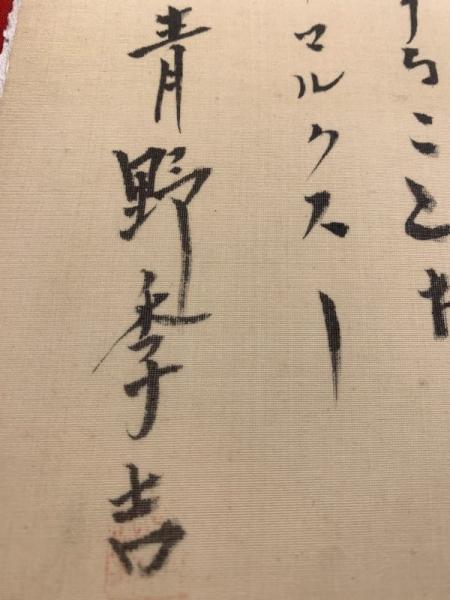 こと
マルクス―
青野季吉